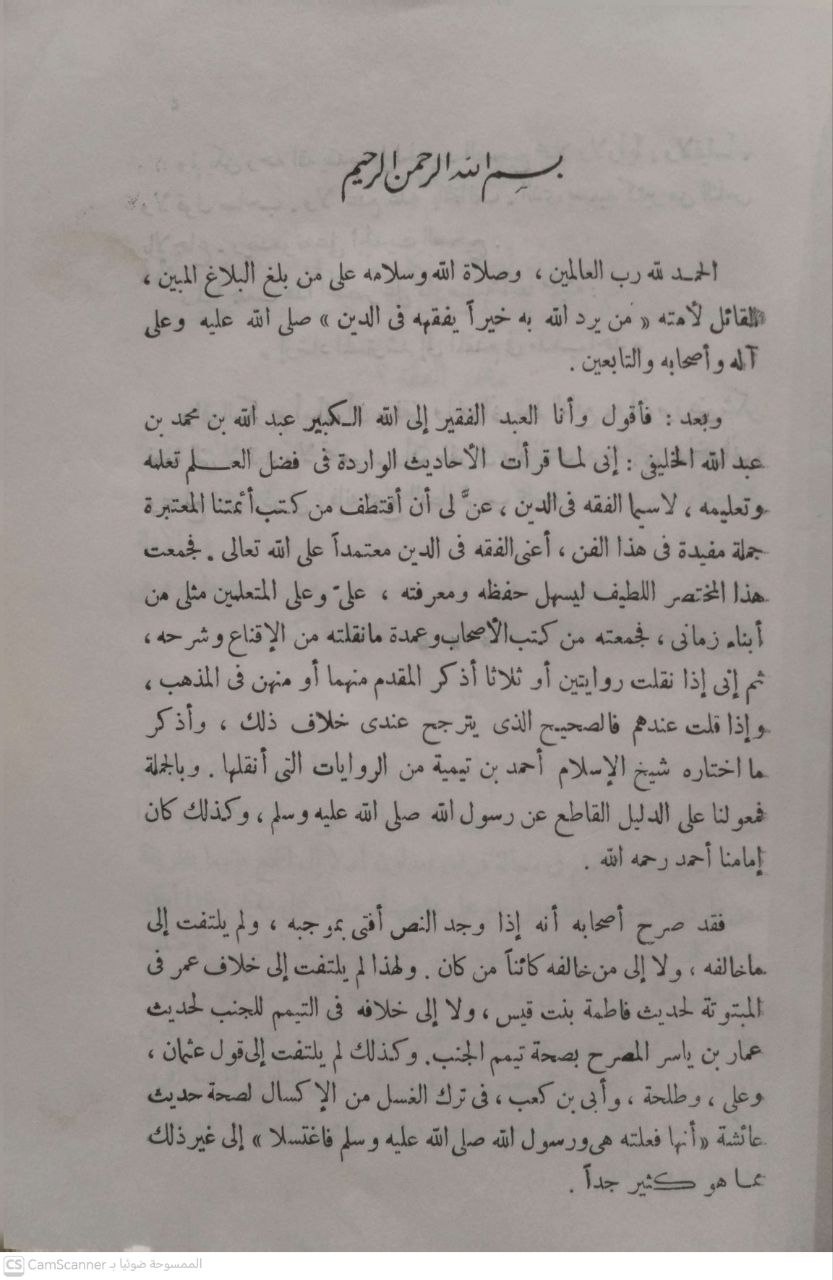 بسم الله الرحمن الرحيم
الحمد لله رب العالمين ، وصلاة الله وسلامه على من بلغ البلاغ المبين ،
القائل لأمته « من يرد الله به خيراً يفقهه فى الدين » صلى الله عليه وعلى
آله وأصحابه والتابعين .
وبعد : فأقول وأنا العبد الفقير إلى الله الكبير عبد الله بن محمد بن
عبد الله الخليفى : إنى لما قرأت الأحاديث الواردة فى فضل العلم تعلمه
وتعليمه ، لاسيما الفقه فى الدين ، عنَّ لى أن أقتطف من كتب أئمتنا المعتبرة
جملة مفيدة فى هذا الفن ، أعنى الفقه فى الدين معتمداً على الله تعالى . فجمعت
هذا المختصر اللطيف ليسهل حفظه ومعرفته ، علىّ وعلى المتعلمين مثلى من
أبناء زمانى ، فجمعته من كتب الأصحاب وعمدة مانقلته من الإقناع وشرحه ،
ثم إنى إذا نقلت روايتين أو ثلاثا أذكر المقدم منهما أو منهن فى المذهب ،
وإذا قلت عندهم فالصحيح الذى يترجح عندى خلاف ذلك ، وأذكر
ما اختاره شيخ الإسلام أحمد بن تيمية من الروايات التى أنقلها . وبالجملة
فمعولنا على الدليل القاطع عن رسول الله صلى الله عليه وسلم ، وكذلك كان
إمامنا أحمد رحمه الله .
فقد صرح أصحابه أنه إذا وجد النص أفتى بموجبه ، ولم يلتفت إلى
ماخالفه ، ولا إلى من خالفه كائناً من كان . ولهذا لم يلتفت إلى خلاف عمر فى
المبتوتة لحديث فاطمة بنت قيس ، ولا إلى خلافه فى التيمم للجنب لحديث
عمار بن ياسر المصرح بصحة تيمم الجنب. وكذلك لم يلتفت إلى قول عثمان ،
وعلى ، وطلحة ، وأبى بن كعب ، فى ترك الغسل من الإكسال لصحة حديث
عائشة « أنها فعلته هى ورسول الله صلى الله عليه وسلم فاغتسلا » إلى غير ذلك
مما هو كثير جداً .
CS CamScanner الممسوحة ضوئيا بـ